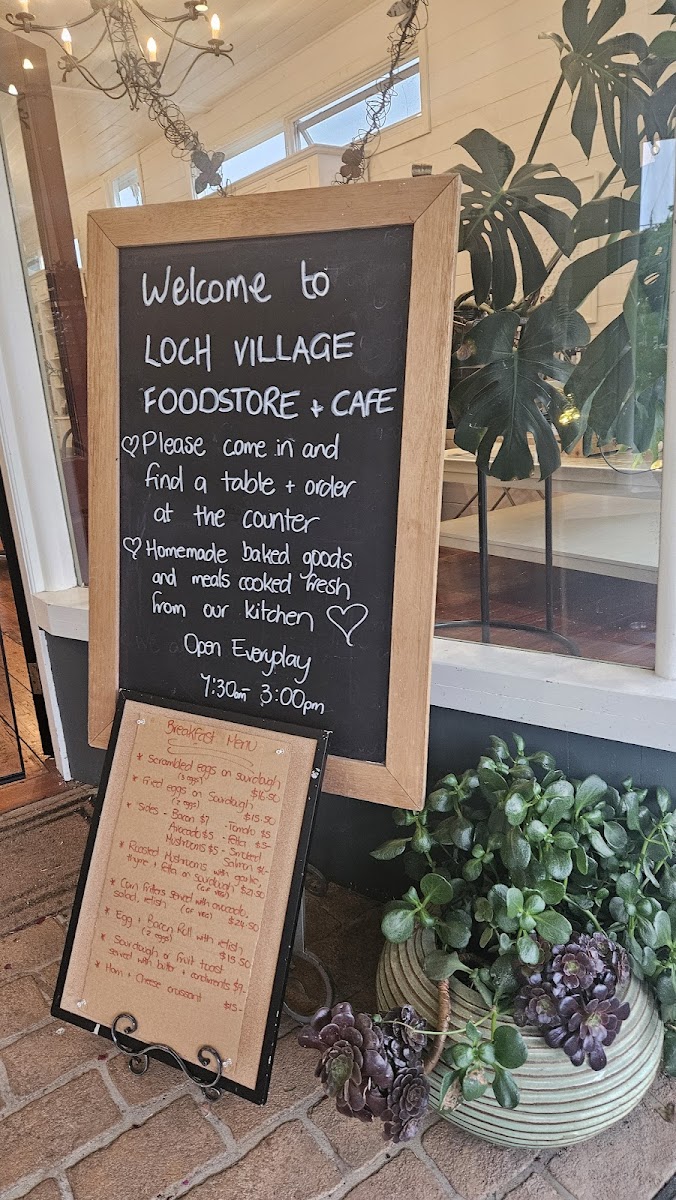 Welcome to
LOCH VILLAGE
FOODSTORE + CAFE
Please come in and
find a table + order
at the counter
Homemade baked goods
and meals cooked fresh
from our kitchen
Open Everyday
7:30am - 3:00pm
Breakfast Menu
* Scrambled eggs on sourdough
(3 eggs) $16.50
* Fried eggs on Sourdough
(2 eggs) $15.50
* Sides - Bacon $7 - Tomato $5
Avocado $5 - Fetta $5-
Mushrooms $5 - Smoked
Salmon
* Roasted Mushrooms with garlic,
thyme + fetta on sourdough $21.50
(GF VEG)
* Corn fritters served with avocado,
salad, relish (GF VEG) $24.50
* Egg + Bacon Roll with relish
(2 eggs) $15.50
* Sourdough or fruit toast
served with butter + condiments $9-
* Ham + Cheese croissant
$15-